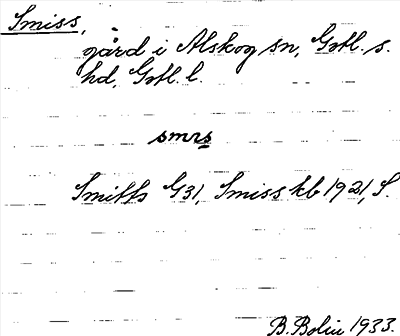 Smiss,
gård i Alskog sn, Gotl. s.
hd, Gotl. l.
smɪs
Smitts G31, Smiss kb 1921, S.
B. Bolin 1933.